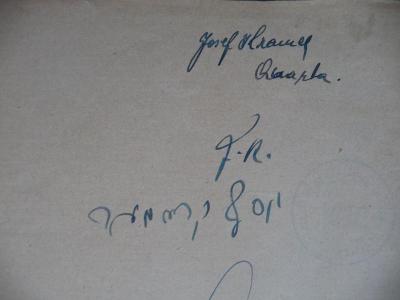 Josef Kramer
J. K.
יוסף קראמער